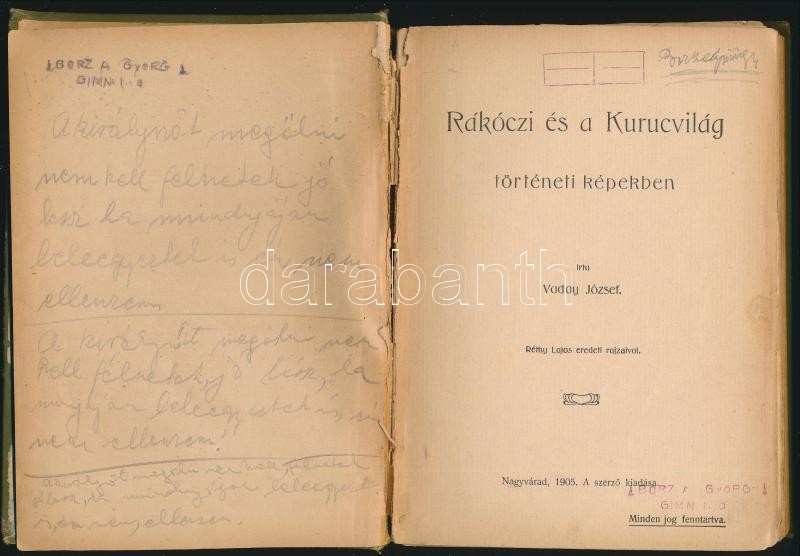 BORZ A GYORG
GIMN I. O
A királynőt megölni
nem kell félnetek jó
lesz ha mindnyájan
beleegyeztek is én nem
ellenzem
A királynőt megölni nem
kell félnetek, jó lesz, ha
beleegyeztek is, én
nem ellenzem!
A királynőt megölni nem kell, félnetek
jó lesz, ha beleegyeztek
is, én nem, ellenzem.
Rákóczi és a Kurucvilág
történeti képekben
irta
Vaday József.
Réthy Lajos eredeti rajzaival.
Nagyvárad, 1905. A szerző kiadása.
BORZ A GYORG
GIMN I. O
Minden jog fenntartva.
darabanth.com